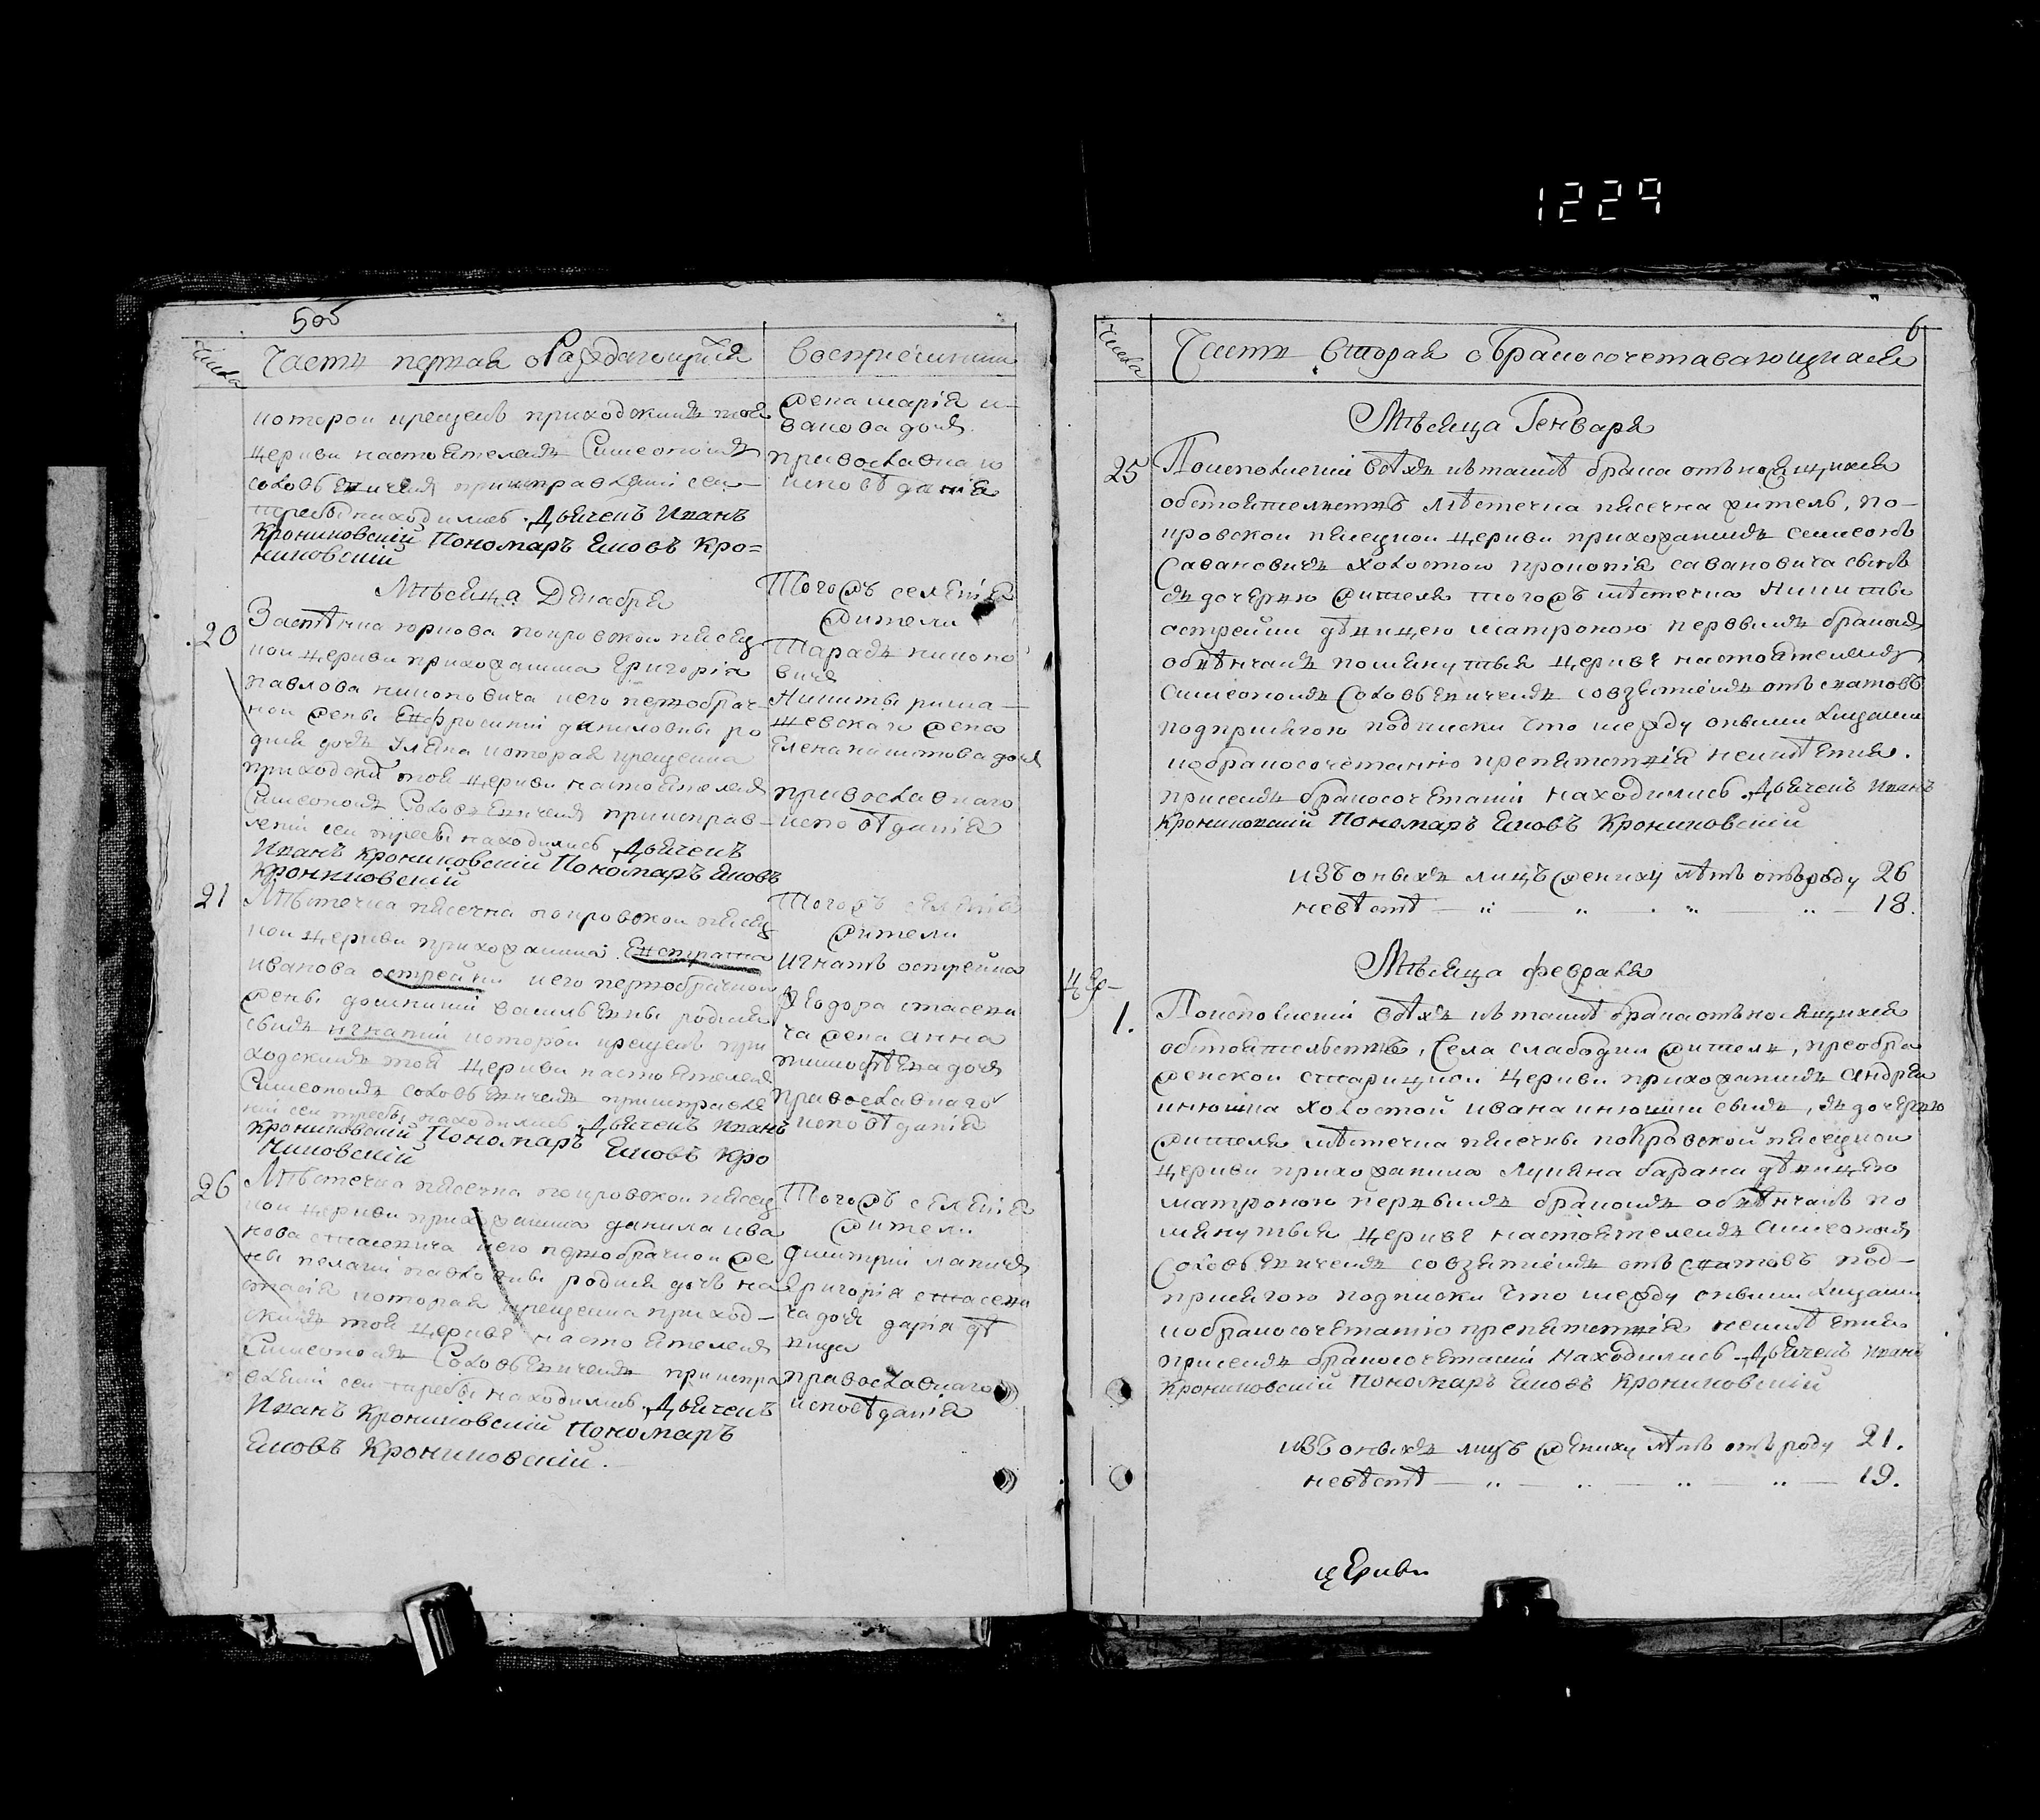 1229
505
Числа
Часть первая о Раждающихся
Воспріемники
которой крещенъ приходскимъ тоя
церкви настоятелемъ Симеономъ
Соловьевичемъ при исправленіи сей
требы находились Дьячекъ Иванъ
Крониковскій Пономаръ Яковъ Кро=
никовскій
жена марія и-
ванова дочь
православнаго
исповѣданія
Мѣсяца Декабря
20
Застѣнка юркова покровской пясец
кой церкви прихожанина Григорія
павлова кононовича и его первобрач-
ной жены Евфросиніи даниловны ро
дися дочь Ульяна которая крещенна
приходскимъ той церкви настоятелемъ
Симеономъ Соловьевичемъ при исправ-
леніи сей требы находились Дьячекъ
Иванъ Крониковскій Пономаръ Яковъ
Крониковскій
Тогожъ селенія
жители
Тарасъ
Никиты
жена
Елена
дочь
православнаго
исповѣданія
21
Мѣстечка пясечна покровской пясец
кой церкви прихожанина
иванова острейки и его первобрачной
жены домникіи васильевны родися
сынъ игнатій которой крещенъ при
ходскимъ той церкви настоятелемъ
Симеономъ соловьевичемъ при исправле
ніи сей требы находились Дьячекъ Иванъ
Крониковскій Пономаръ Яковъ Кро
никовскій
Тогожъ селенія
жители
игнатъ острейка
Ѳеодора стасеви
ча жена анна
тимофѣева дочь
православнаго
исповѣданія
26
Мѣстечка пясечна покровской пясец
кой церкви прихожанина данила ива
нова стасевича и его первобрачной же
ны пелагіи павловны родися дочь на
стасія которая крещенна приход-
скимъ той церкви настоятелемъ
Симеономъ Соловьевичемъ при испра
вленіи сей требы находились Дьячекъ
Иванъ Крониковскій Пономаръ
Яковъ Крониковскій.
Тогожъ селенія
жители
Димитрій
григорія стасеви
ча дочь дарія дѣ
вица
православнаго
исповѣданія
6
Числа
Часть вторая о бракосочетавающихся
Мѣсяца Генваря
25
По исполненіи всѣхъ къ таинѣ брака относящихся
обстоятельствъ мѣстечка пясечна житель, по-
кровской пясецкой церкви прихожанинъ семионъ
Савановичъ холостой прокопія савановича сынъ
съ дочерью жителя тогожъ мѣстечка Никиты
острейки дѣвицею матроною первымъ бракомъ
обвѣнчанъ помянутыя церкви настоятелемъ
симеономъ Соловьевичемъ со взятіемъ отъ сватовъ
подприсягою подписки что между оными лицами
к бракосочетанію препятствія неимѣется.
при семъ бракосочетаніи находились Дьячекъ Иванъ
Крониковскій Пономаръ Яковъ Крониковскій
изъ оныхъ лицъ жениху лѣтъ отъ роду 26
невѣстѣ — „ — „ — „ — „ — 18.
Мѣсяца февраля
цер-
1.
По исполненіи всѣхъ къ таинѣ брака относящихся
обстоятельствъ, села слабодки житель, преобра
женской старицкой церкви прихожанинъ андрей
холостой ивана сынъ, съ дочерью
жителя мѣстечка пясечны покровской пясецкой
церкви прихожанина Лукьяна барана дѣвицею
матроною первымъ бракомъ обвѣнчанъ по
мянутыя церкви настоятелемъ симеономъ
Соловьевичемъ со взятіемъ отъ сватовъ под-
присягою подписки что между оными лицами
к бракосочетанію препятствія неимѣется
при семъ бракосочетаніи находились Дьячекъ Иванъ
Крониковскій Пономаръ Яковъ Крониковскій
изъ оныхъ лицъ жениху лѣтъ отъ роду 21.
невѣстѣ — „ — „ — „ — „ — 19.
церкви